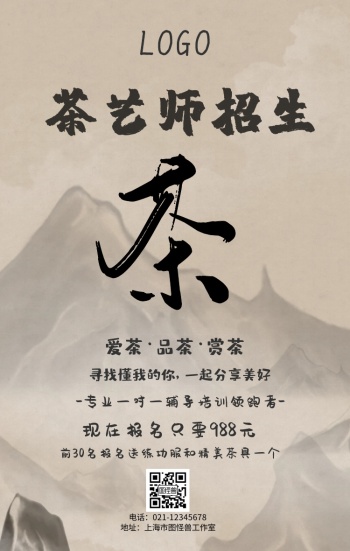 LOGO
茶艺师招生
茶
爱茶·品茶·赏茶
寻找懂我的你,一起分享美好
-专业一对一辅导培训领跑者-
现在报名只要988元
前30名报名送练功服和精美茶具一个
图怪兽
电话：021-12345678
地址：上海市图怪兽工作室